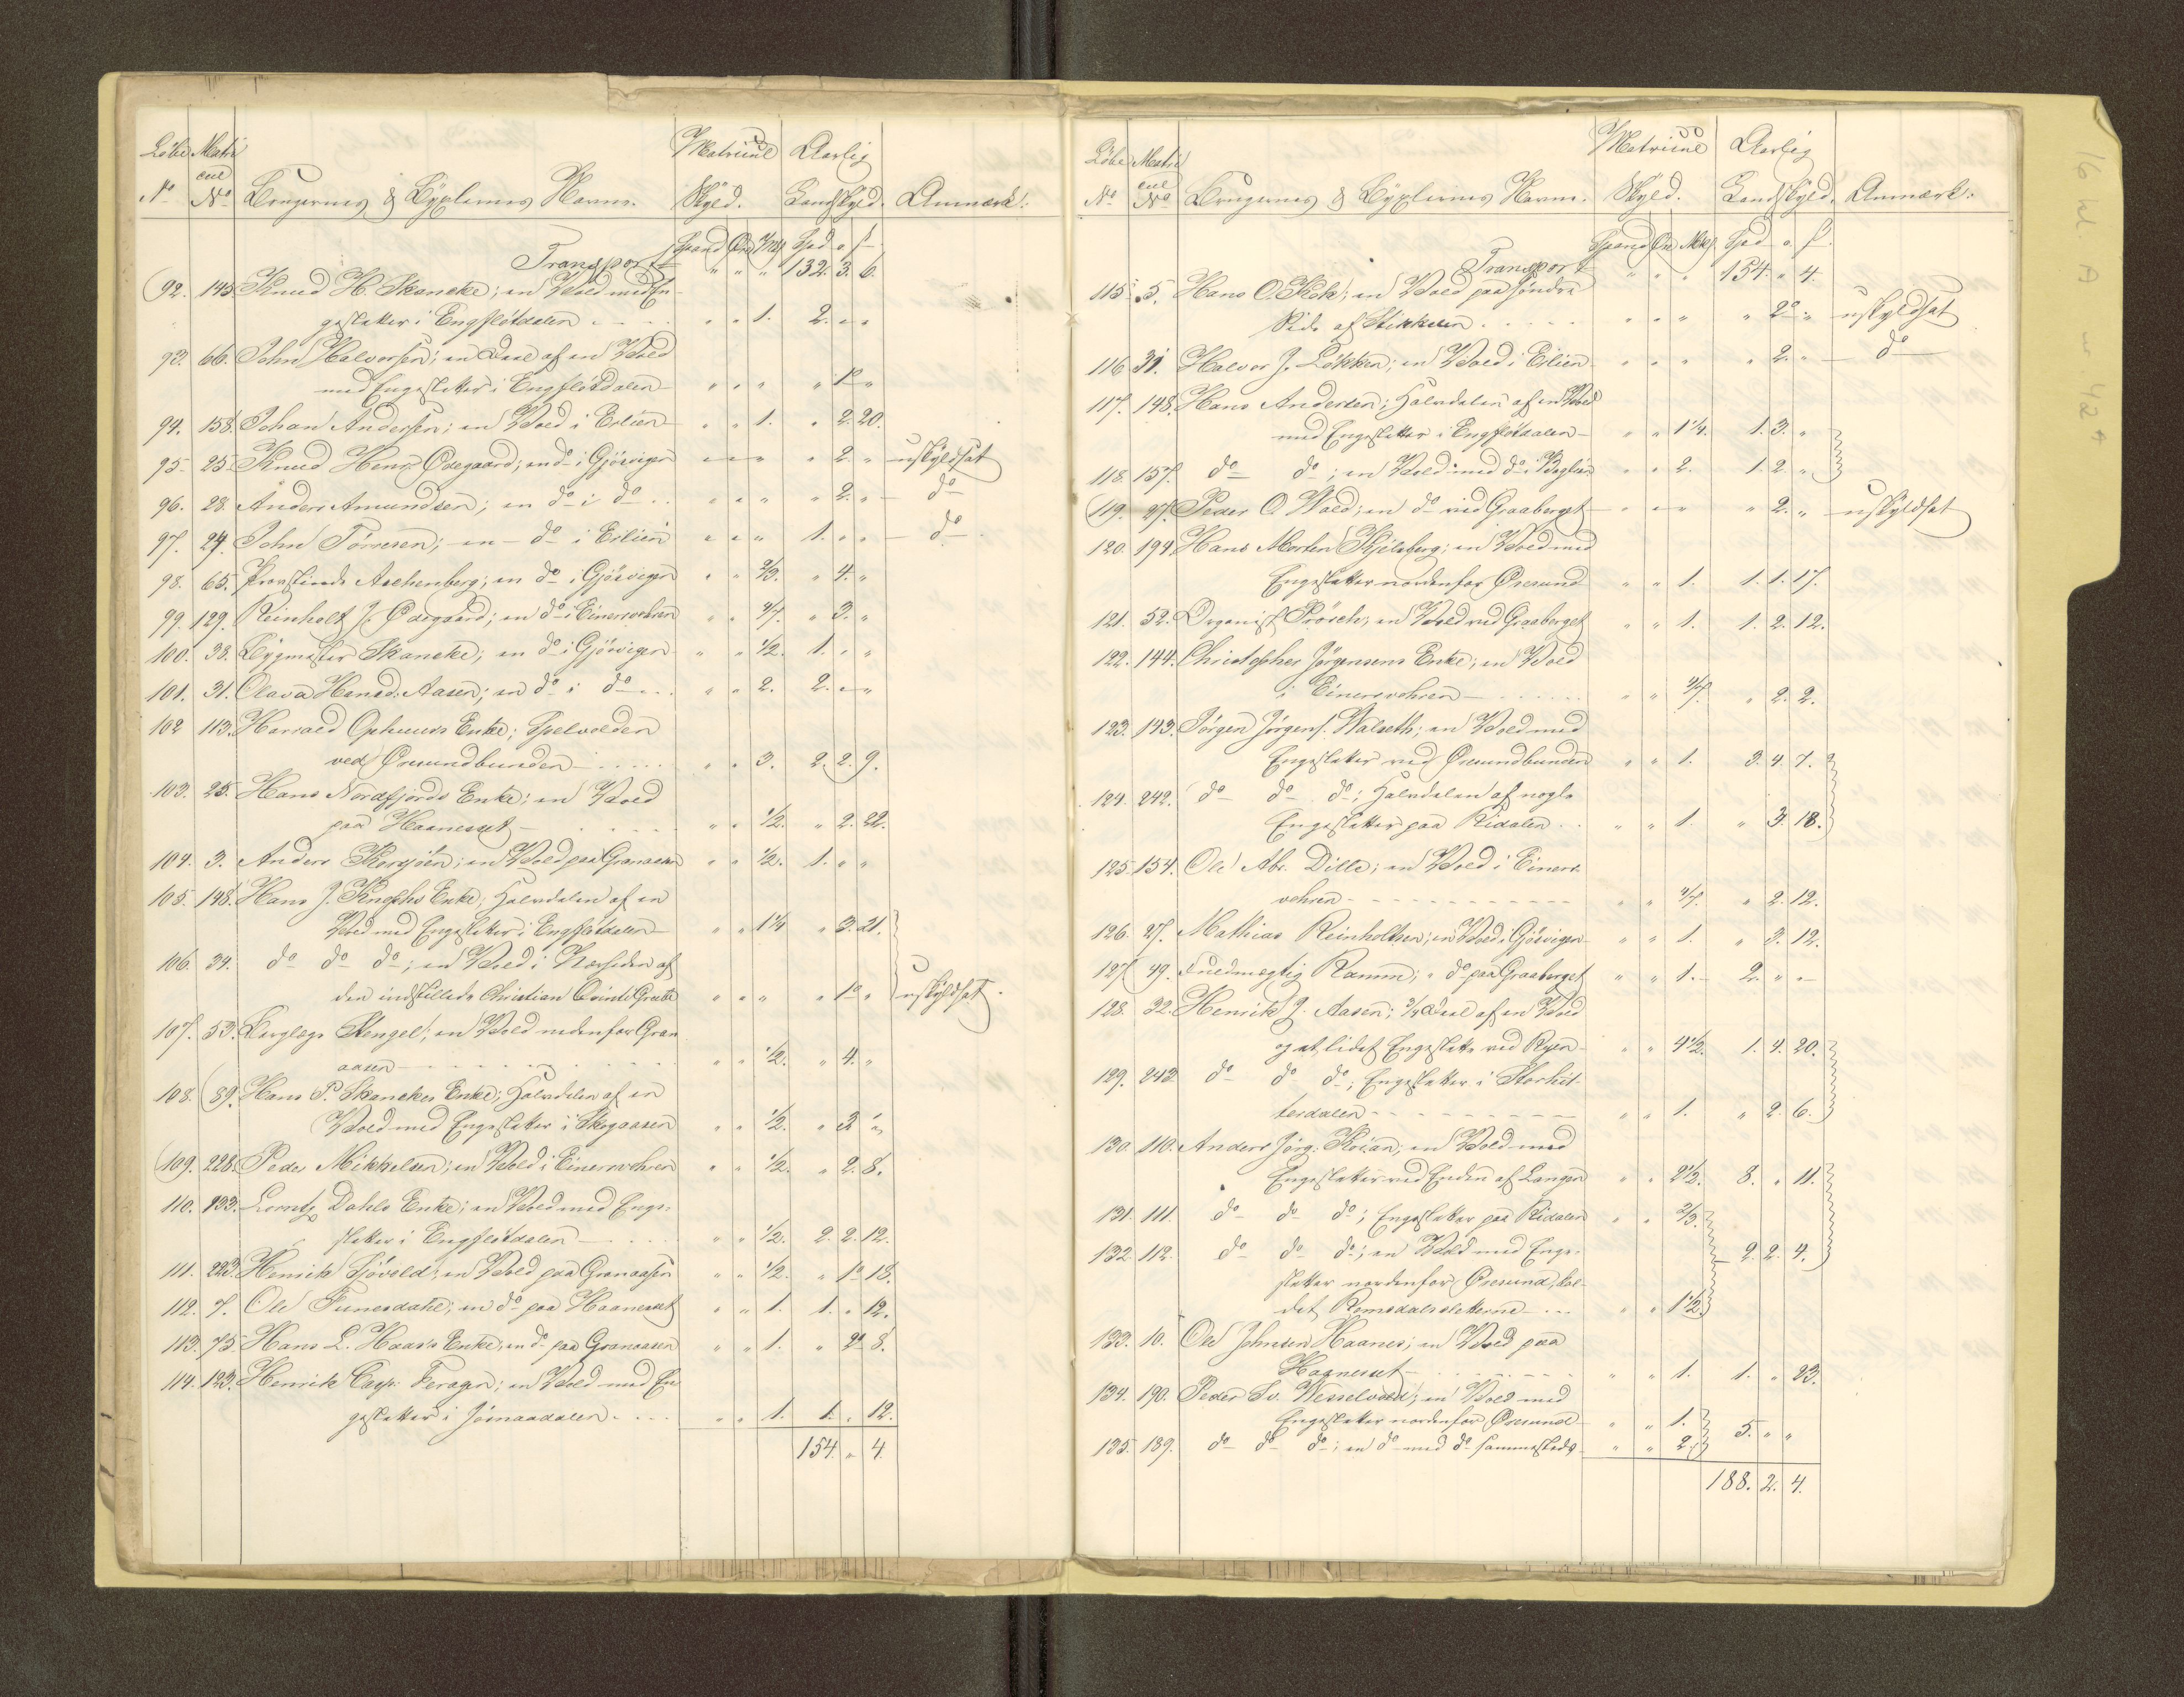 Löbe Matri Matricul Aarlig
cul
No No Brugernes & Byxlernes Navne. Skyld. Landskyld. Anmærk:
Spand Öre Mkl Spd o ſ
Transport " " " 132. 3. 6.
92. 145. Knud H. Skancke; en Vold med En-
gesletter i Engflötdalen " " 1. 2. " "
93. 66. John Halvorsen; en Deel af en Vold
med Engesletter i Engflötdalen " " " " 1 "
94. 158. Johan Andersen; en Vold i Erlien " " 1. " 2. 20.
95. 25. Knud Hens. Ödegaard; en do i Gjösvigen " " " " 2. " uskyldsat
96. 28. Anders Amundsen; en do i do " " " " 2. " do
97. 24. John Törresen; en do i Erlien " " " 1. " " do
98. 65. Provstinde Aschenberg; en do i Gjösvigen " " 2/3. " 4. "
99. 129. Reinholt J. Ödegaard; en do i Einersvohren " " 4/7. " 3. "
100. 38. Bygmester Skancke; en do i Gjösvigen " " 1/2. 1. " "
101. 31. Olava Hansd. Aasen; en do i do " " 2. 2. " "
102 113. Harrald Ophuus's Enke; Spelvolden
ved Öresundbunden " " 3. 2. 2. 9.
103. 25. Hans Nordfjords Enke; en Vold
paa Haanesset " " 1/2. " 2. 22.
104. 3. Anders Korsjöen; en Vold paa Granaasen " " 1/2. 1. " "
105. 148. Hans J. Knophs Enke; Halvdelen af en
Vold med Engesletter i Engflötdalen " " 1 1/4 " 3. 21.
106. 34. do do do; en Vold i Nærheden af
den indstillede Christian Qvinti Grube " " " " 1 " uskyldsat.
107. 53. Berglæge Stengel; en Vold nedenfor Gran-
aasen " " 1/2. " 4. "
108. 89. Hans P. Skanckes Enke; Halvdelen af en
Vold med Engesletter i Skogaasen " " 1/2. " 3 "
109. 228. Peder Mikkelsen; en Vold i Einersvohren " " 1/2. " 2. 8.
110. 133. Lorntz Dahls Enke; en Vold med Enge-
sletter i Engflötdalen " " 1/2. 2. 2. 12.
111. 223. Henrik Sjövold; en Vold paa Granaasen " " 1/2. " 1 18.
112. 7. Ole Funesdahl; en do paa Haanesset " " 1. 1. " 12.
113. 75. Hans L. Haas's Enke; en do paa Granaasen " " 1. " 2 8.
114. 123. Henrik Casp. Feragen; en Vold med En-
gesletter i Jomaadalen " " 1. 1. " 12.
154. " 4.
Löbe Matri Matricul Aarlig
cul
No No Brugernes & Byxlernes Navne. Skyld. Landskyld. Anmærk:
Spand Öre Mkl Spd o ſ
Transport " " " 154. " 4.
115. 5. Hans O. Kok; en Vold paa söndre
Side af Stikkelen " " " " 2 " uskyldsat
116. 31. Halvor J. Lökken; en Vold i Erlien " " " " 2. " do
117. 148. Hans Andersen; Halvdelen af en Vold
med Engesletter i Engflötdalen " " 1 1/4. 1. 3. "
118. 157. do do; en Vold med do i Beglien " " 2. 1. 2. "
119. 27. Peder O. Wold; en do ved Graaberget " " " " 2. " uskyldsat
120. 194. Hans Morten Kjelsberg; en Vold med
Engesletter nordenfor Öresund " " 1. 1. 1. 17.
121. 52. Organist Prösch; en Vold ved Graaberget " " 1. 1. 2. 12.
122. 144. Christopher Jörgensens Enke; en Vold
i Einersvohren " " 4/7. " 2. 2.
123. 143. Jörgen Jörgens. Walseth; en Vold med
Engesletter ved Öresundbunden " " 1. 3. 4. 7.
124. 242. do do do; Halvdelen af nogle
Engesletter paa Ridalen " " 1. " 3. 18.
125. 154. Ole Abr. Dille; en Vold i Einers-
vohren " " 4/7. " 2. 12.
126. 27. Mathias Reinholtsen; en Vold i Gjösvigen " " 1. " 3. 12.
127. 49. Fuldmægtig Ramm; " do paa Graaberget " " 1. 2. " "
128. 32. Henrik J. Aasen; 3/4 Deel af en Vold
og et lidet Engeslette ved Ryen " " 4 1/2. 1. 4. 20.
129. 243 do do do; Engesletter i Storhit-
terdalen " " 1. " 2. 6.
130. 110. Anders Jörg. Kroian; en Vold med
Engesletter ved Enden af Langen " " 2 1/2. 8. " 11.
131. 111. do do do; Engesletter paa Ridalen " " 2/3.
132. 112. do do do; en Vold med Enge-
sletter nordenfor Öresund, kal-
det Romsdalsletterne " " 1 1/2. 2. 2. 4.
133. 10. Ole Johnsen Haanes; en Vold paa
Haanesset " " 1. 1. " 23.
134. 190. Peder Sv. Wesselvold; en Vold med
Engesletter nordenfor Öresund " " 1. 5. " "
135. 189. do do do; en do med do sammesteds " " 2.
188. 2. 4.